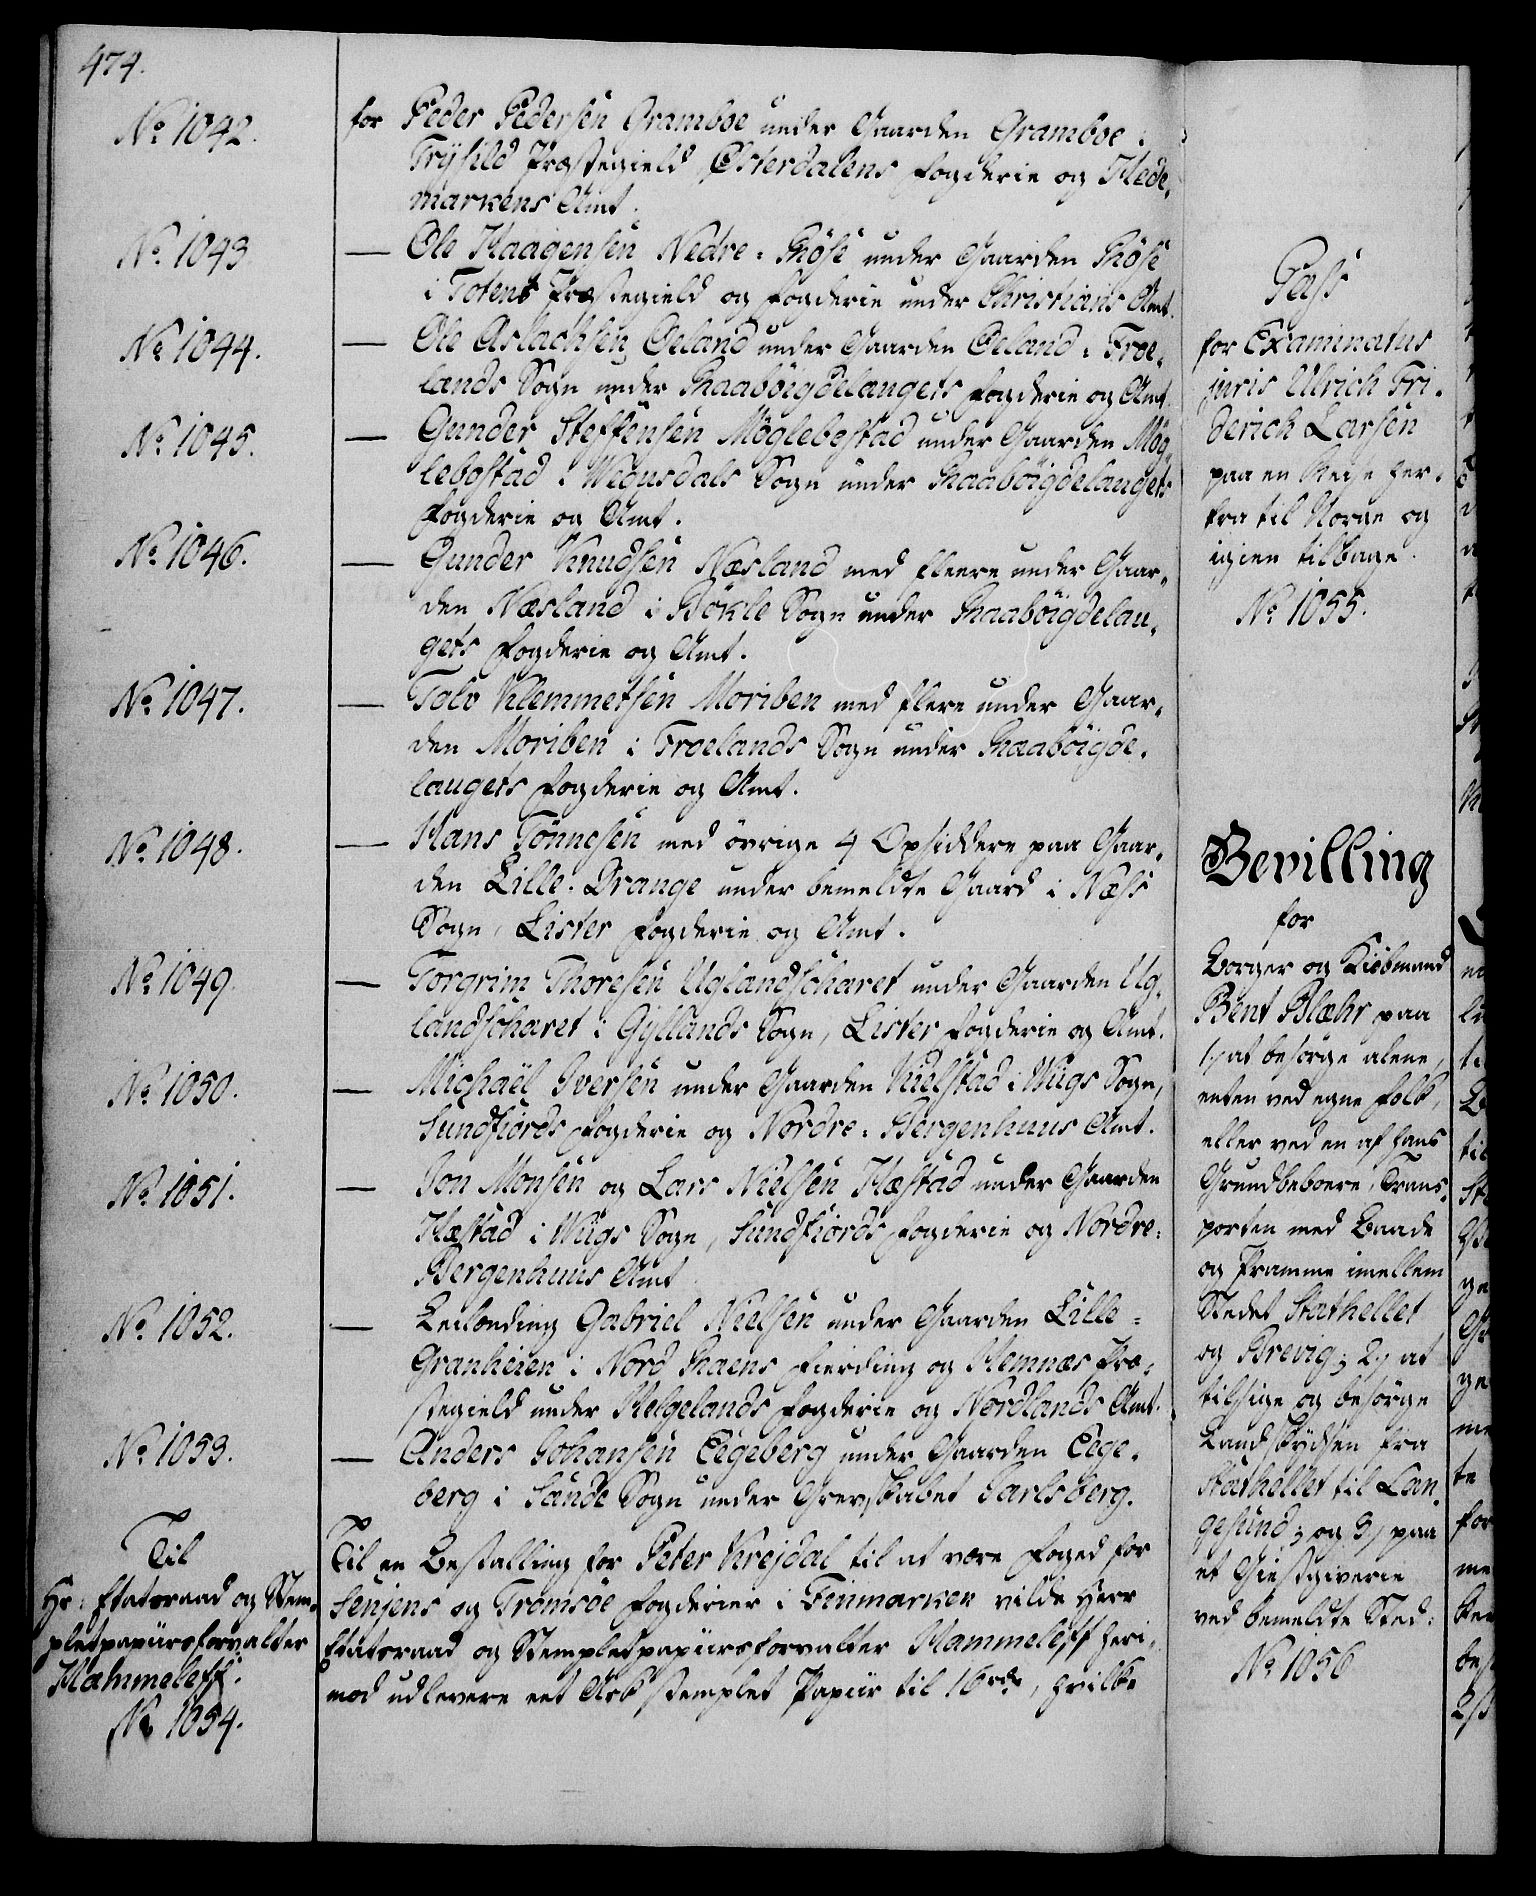 474.
No 1042.
for Peder Pedersen Gramboe under Gaarden Gramboe i
Trysild Præstegield, Østerdalens Fogderie og Hede-
markens Amt.
No 1043.
— Ole Haagensen Nedre-Røse under Gaarden Røse
i Totens Præstegield og Fogderie under Christians Amt.
No 1044.
— Ole Aslachsen Øeland under Gaarden Øeland i Froe-
lands Sogn under Raabøigdelaugets Fogderie og Amt.
No 1045.
— Gunder Steffensen Møglebostad under Gaarden Møg-
lebostad i Wegusdals Sogn under Raabøigdelaugets
Fogderie og Amt.
No 1046.
— Gunder Knudsen Næsland med fleere under Gaar-
den Næsland i Bøkle Sogn under Raabøigdelau-
gets Fogderie og Amt.
No 1047.
— Talv Klemmetsen Moriben med flere under Gaar-
den Moriben i Froelands Sogn under Raabøigde-
laugets Fogderie og Amt.
No 1048.
— Hans Tønnesen med øvrige 4 Opsiddere paa Gaar-
den Lille-Drange under bemeldte Gaard i Næss
Sogn, Lister Fogderie og Amt.
No 1049.
— Torgrim Thoresen Uglandscharet under Gaarden Ug-
landscharet i Gyllands Sogn, Lister Fogderie og Amt.
No 1050.
— Michaël Iversen under Gaarden Kielstad i Wiigs Sogn,
Sundfiords Fogderie og Nordre-Bergenhuus Amt.
No 1051.
— Jon Monsen og Lars Nielsen Hæstad under Gaarden
Hæstad i Wiigs Sogn, Sundfiords Fogderie og Nordre-
Bergenhuus Amt
No 1052.
— Leilænding Gabriel Nielsen under Gaarden Lille-
Granheien i Nord Raens Fierding og Hemnæs Præ-
stegield under Helgelands Fogderie og Nordlands Amt.
No 1053.
— Anders Johansen Eegeberg under Gaarden Eege-
berg i Sande Sogn under Grevskabet Jarlsberg.
Til
Hr: Etatsraad og Stem-
pletpapiirsforvalter
Hammeleff.
No 1054.
Til en Bestalling for Peter Krejdal til at være Foged for
Senjens og Tromsøe Fogderier i Finmarken vilde Herr
Etatsraad og Stempletpapiirsforvalter Hammeleff heri-
mod udlevere eet Ark stemplet Papiir til 16 rdr, hvilke
Pass
for Examinatus
juris Ulrich Fri-
derich Larsen
paa en Reise her-
fra til Norge og
igien tilbage.
No 1055.
Bevilling
for
Borger og Kiøbmand
Bent Blæhr paa
1, at besørge alene,
enten ved egne Folk,
eller ved en af hans
Grundbeboere, Trans-
porten med Baade
og Pramme imellem
Stedet Stathellet
og Brevig; 2, at
tilsige og besørge
Landskydsen fra
Stathellet til Lan-
gesund; og 3, paa
et Giestgiverie
ved bemeldte Sted.
No 1056